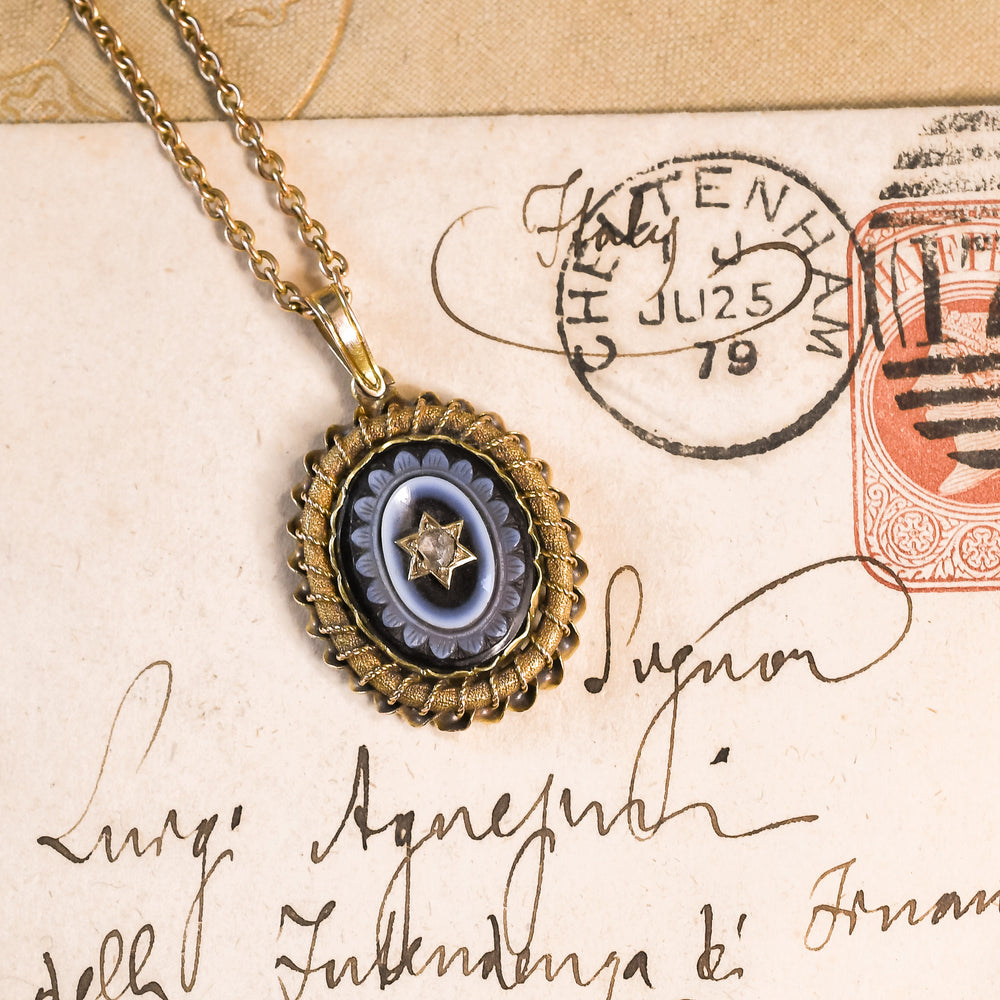 Italy
CHELTENHAM
J
JU25
79
HALFP
Signor
Luigi
della Intendenza di